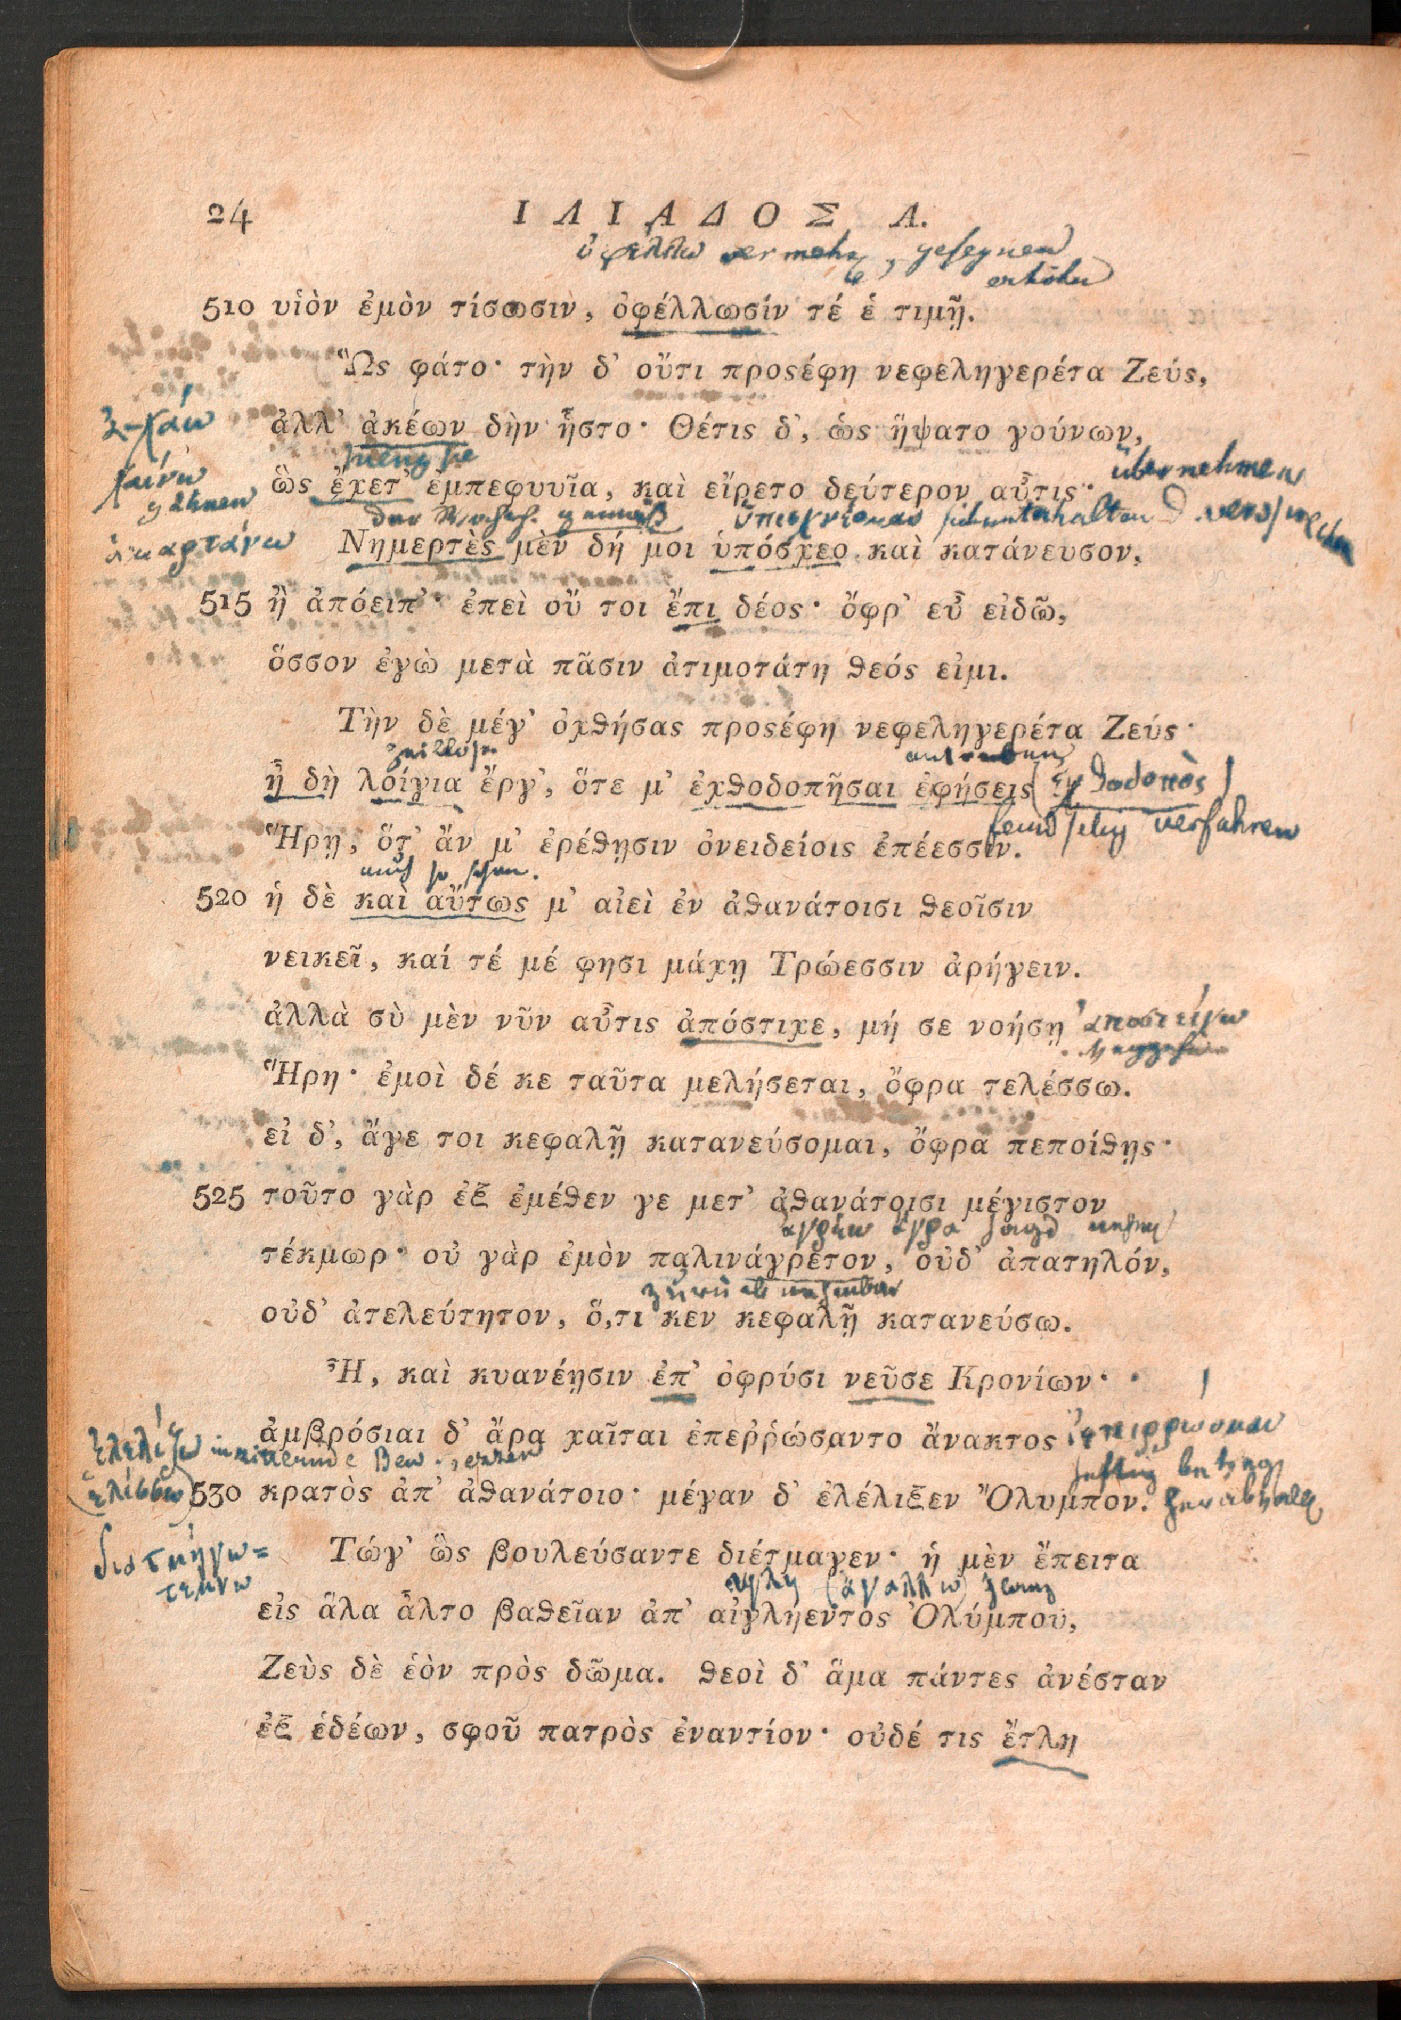 24 ΙΛΙΑΔΟΣ Α.
ὀφέλλω vermehr, gesegnen
erhöhn
510 υἱὸν ἐμὸν τίσωσιν, ὀφέλλωσίν τέ ἑ τιμῇ.
Ὣς φάτο· τὴν δ' οὔτι προςέφη νεφεληγερέτα Ζεύς,
ἀλλ' ἀκέων δὴν ἧστο· Θέτις δ', ὡς ἥψατο γούνων,
übernehmen
ὣς ἔχετ' ἐμπεφυυῖα, καὶ εἴρετο δεύτερον αὖτις·
ὑπισχνέομαι
ἁμαρτάνω Νημερτὲς μὲν δή μοι ὑπόσχεο καὶ κατάνευσον,
515 ἢ ἀπόειπ'· ἐπεὶ οὔ τοι ἔπι δέος· ὄφρ' εὖ εἰδῶ,
ὅσσον ἐγὼ μετὰ πᾶσιν ἀτιμοτάτη θεός εἰμι.
Τὴν δὲ μέγ' ὀχθήσας προςέφη νεφεληγερέτα Ζεύς·
ἦ δὴ λοίγια ἔργ', ὅτε μ' ἐχθοδοπῆσαι ἐφήσεις (ἐχθοδοπὸς)
verfahren
Ἥρῃ, ὅτ' ἄν μ' ἐρέθῃσιν ὀνειδείοις ἐπέεσσιν.
auch so schon.
520 ἡ δὲ καὶ αὔτως μ' αἰεὶ ἐν ἀθανάτοισι θεοῖσιν
νεικεῖ, καί τέ μέ φησι μάχῃ Τρώεσσιν ἀρήγειν.
ἀλλὰ σὺ μὲν νῦν αὖτις ἀπόστιχε, μή σε νοήσῃ ἀποστείχω
Ἥρη· ἐμοὶ δέ κε ταῦτα μελήσεται, ὄφρα τελέσσω.
εἰ δ', ἄγε τοι κεφαλῇ κατανεύσομαι, ὄφρα πεποίθῃς·
525 τοῦτο γὰρ ἐξ ἐμέθεν γε μετ' ἀθανάτοισι μέγιστον
ἀγρέω ἄγρα Jagd
τέκμωρ· οὐ γὰρ ἐμὸν παλινάγρετον, οὐδ' ἀπατηλόν,
οὐδ' ἀτελεύτητον, ὅ,τι κεν κεφαλῇ κατανεύσω.
Ἦ, καὶ κυανέῃσιν ἐπ' ὀφρύσι νεῦσε Κρονίων·
ἀμβρόσιαι δ' ἄρα χαῖται ἐπεῤῥώσαντο ἄνακτος ἐπιρρωομαι
ἐλελίζω in zitternde Bew. setzen
(ἑλίσσω) 530 κρατὸς ἀπ' ἀθανάτοιο· μέγαν δ' ἐλέλιξεν Ὄλυμπον.
διατμήγω= Τώγ' ὣς βουλεύσαντε διέτμαγεν· ἡ μὲν ἔπειτα
τέμνω
αἴγλη (ἀγάλλω) Glanz
εἰς ἅλα ἆλτο βαθεῖαν ἀπ' αἰγλήεντος Ὀλύμπου,
Ζεὺς δὲ ἑὸν πρὸς δῶμα. θεοὶ δ' ἅμα πάντες ἀνέσταν
ἐξ ἑδέων, σφοῦ πατρὸς ἐναντίον· οὐδέ τις ἔτλη